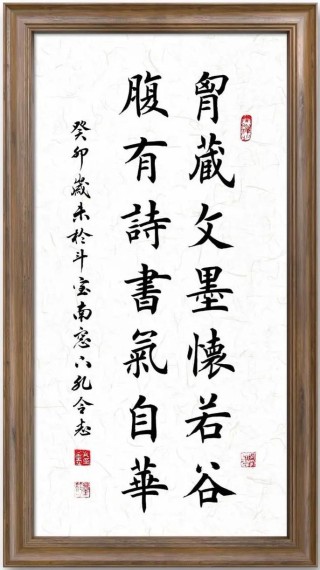 胷藏文墨懷若谷
腹有詩書氣自華
癸卯歲末於斗室南窓下孔令志